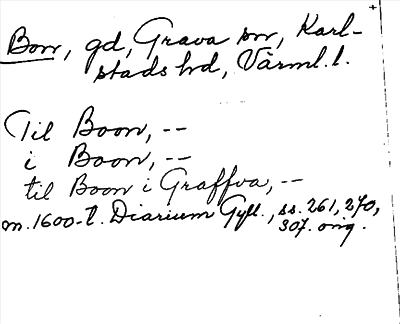 Bon, gd, Grava sn, Karl-
stads hd, Värml. l.
Til Boon, --
i Boon, --
til Boon i Graffva, --
m. 1600-t. Diarium Gyll., ss. 261, 270,
307. orig.